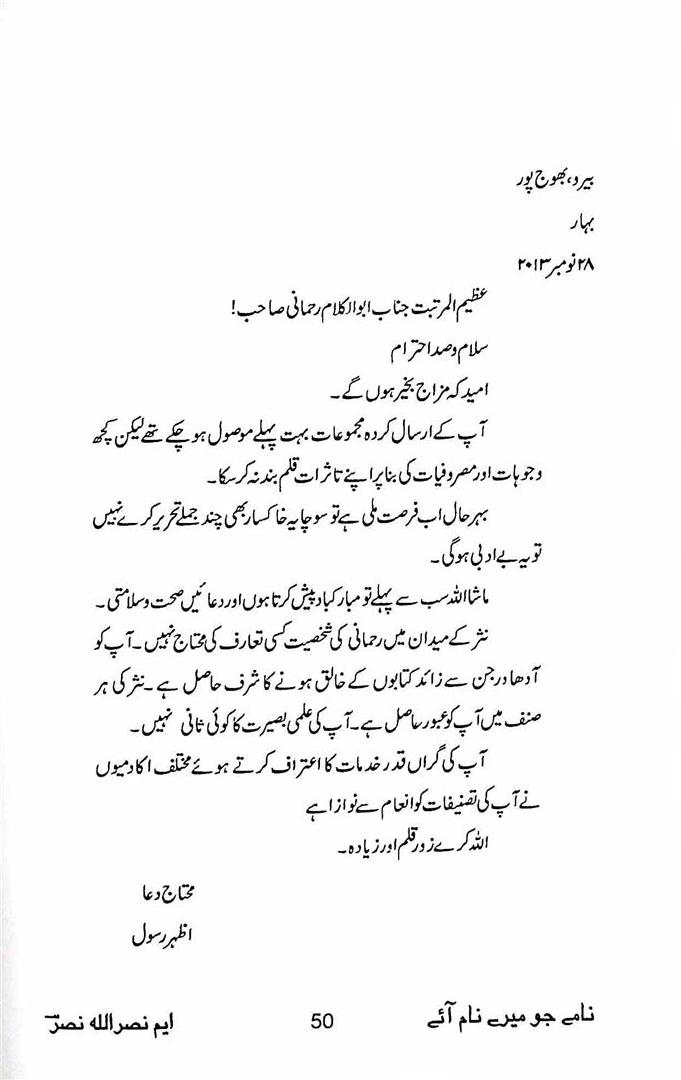 بیرو، بھوج پور
بہار
۲۸ نومبر ۲۰۱۳
عظیم المرتبت جناب ابوالکلام رحمانی صاحب!
سلام و صد احترام
امید کہ مزاج بخیر ہوں گے۔
آپ کے ارسال کردہ مجموعات بہت پہلے موصول ہو چکے تھے لیکن کچھ
وجوہات اور مصروفیات کی بنا پر اپنے تاثرات قلم بند نہ کر سکا۔
بہر حال اب فرصت ملی ہے تو سوچا یہ خاکسار بھی چند جملے تحریر کرے نہیں
تو یہ بے ادبی ہوگی۔
ماشااللہ سب سے پہلے تو مبارکباد پیش کرتا ہوں اور دعائیں صحت و سلامتی۔
نثر کے میدان میں رحمانی کی شخصیت کسی تعارف کی محتاج نہیں۔ آپ کو
آدھا درجن سے زائد کتابوں کے خالق ہونے کا شرف حاصل ہے۔ نثر کی ہر
صنف میں آپ کو عبور حاصل ہے۔ آپ کی علمی بصیرت کا کوئی ثانی نہیں۔
آپ کی گراں قدر خدمات کا اعتراف کرتے ہوئے مختلف اکادمیوں
نے آپ کی تصنیفات کو انعام سے نوازا ہے
اللہ کرے زور قلم اور زیادہ۔
محتاج دعا
اظہر رسول
نامے جو میرے نام آئے 50 ایم نصر اللہ نصرؔ